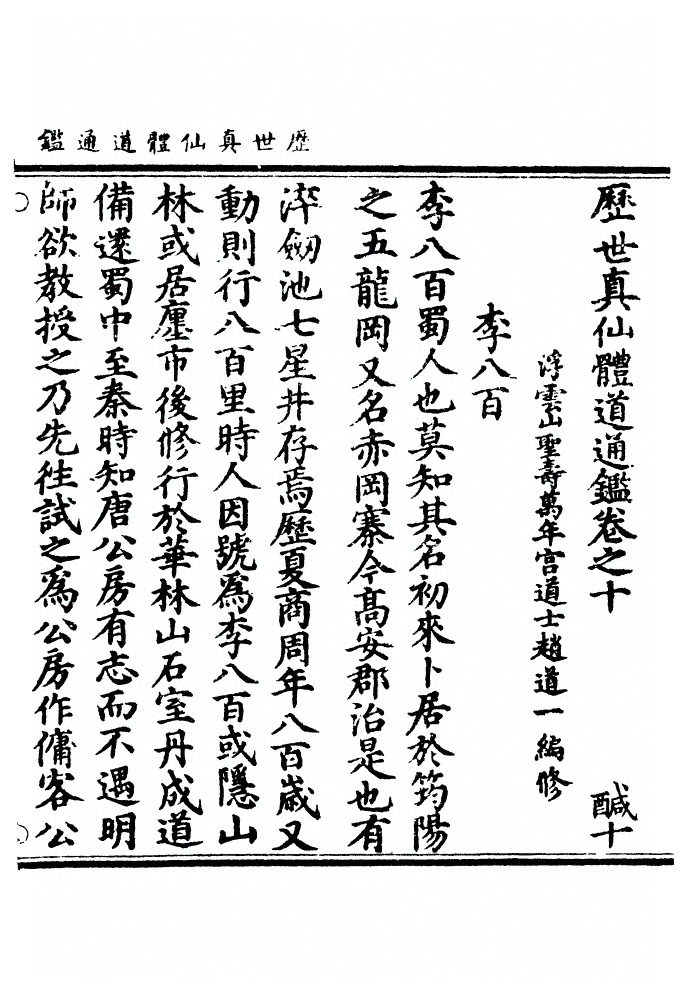 歷世真仙體道通鑑
歷世真仙體道通鑑卷之十 醎十
浮雲山聖壽萬年宮道士趙道一編修
李八百
李八百蜀人也莫知其名初來卜居於筠陽
之五龍岡又名赤岡寨今髙安郡治是也有
淬劔池七星井存焉歷夏商周年八百嵗又
動則行八百里時人因號爲李八百或隱山
林或居㕓市後修行於華林山石室丹成道
備還蜀中至秦時知唐公房有志而不遇明
師欲教授之乃先徃試之爲公房作傭客公